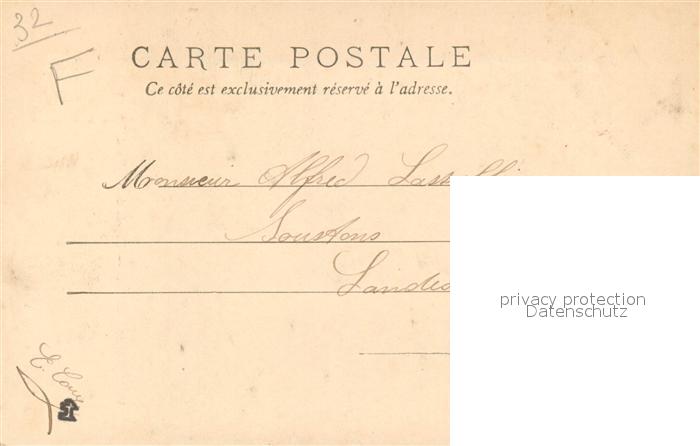 32
F
CARTE POSTALE
Ce côté est exclusivement réservé à l'adresse.
Monsieur Alfred
Soustons
Landes
privacy protection
Datenschutz
E.